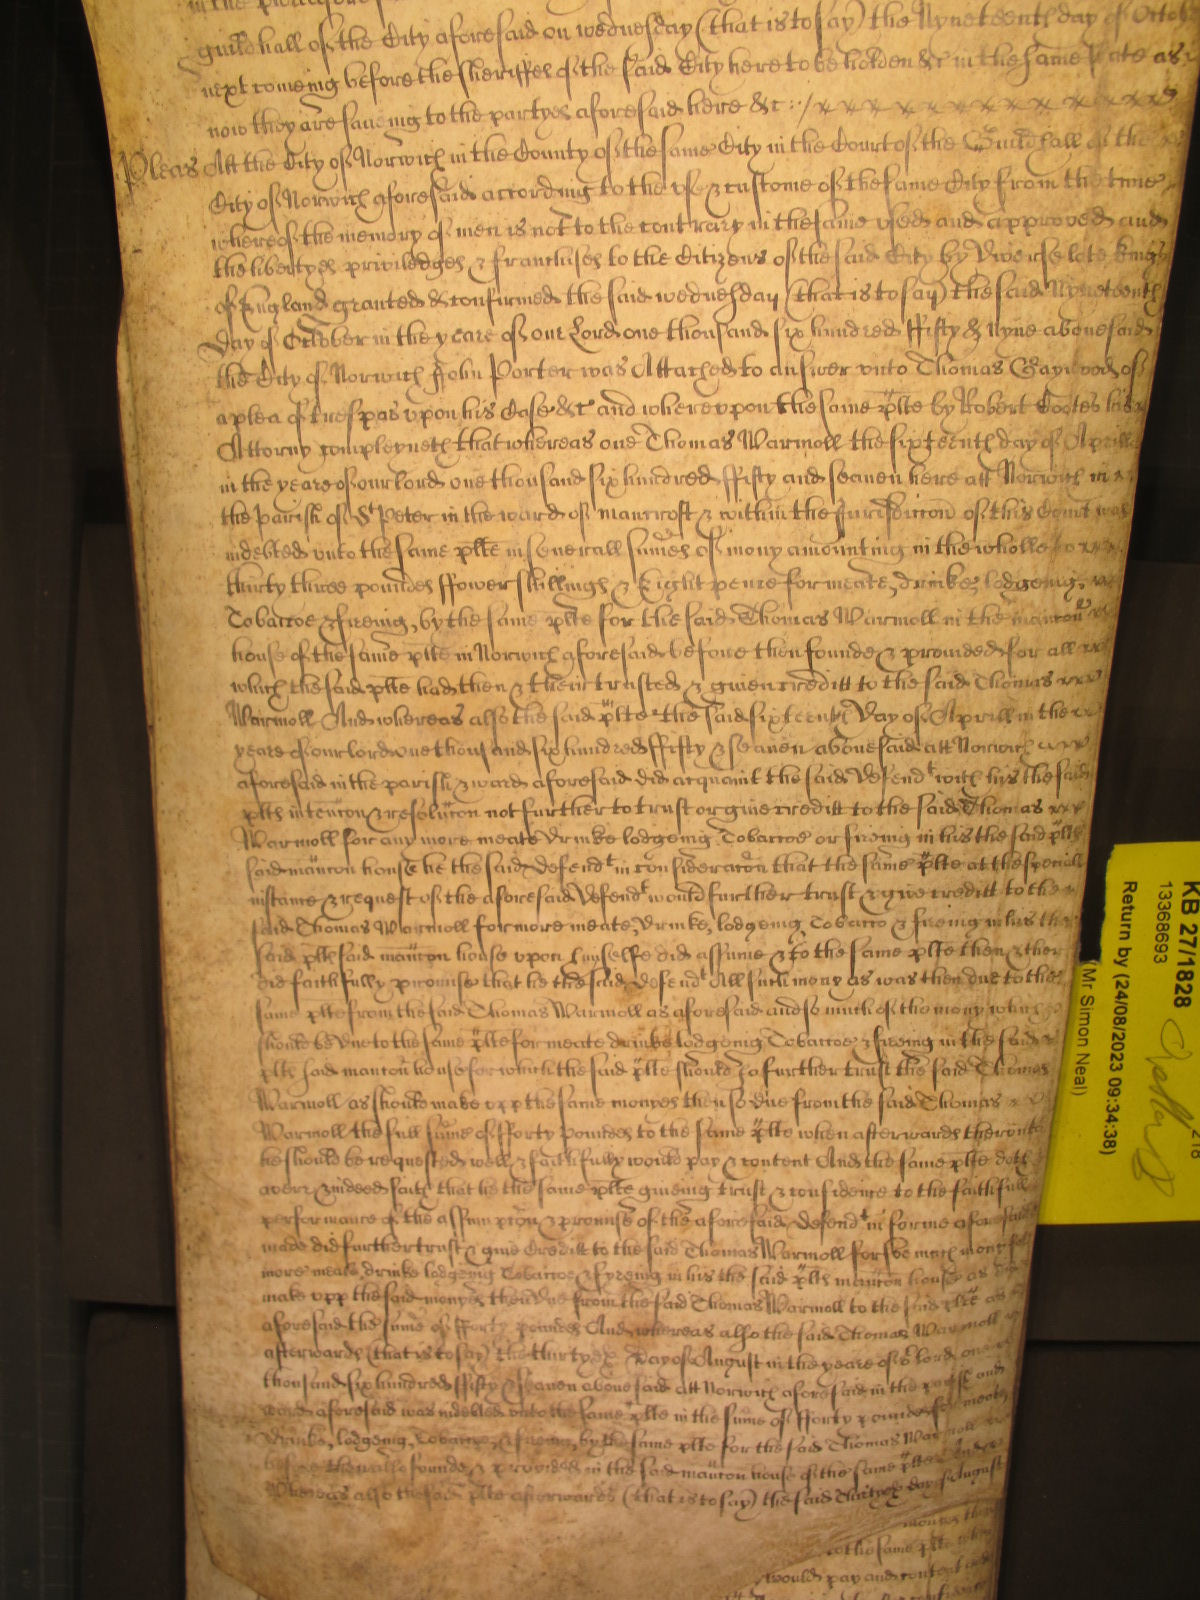 in the
guildhall of the City aforesaid on wednesday (that is to say) the Nyneteenth day of Octob
next comeing before the Sheriffes of the said City here to be holden &c in the same state as
now they are saveing to the partyes aforesaid here &c
Pleas Att the City of Norwich in the County of the same City in the Court of the Guildhall of the
City of Norwich aforesaid according to the use & custome of the same City from the tyme
whereof the memory of men is not to the contrary in the same used and approved and
the libertyes priviledges & franchises to the Citizens of the said City by Diverse late Kings
of England granted & confirmed the said wednesday (that is to say) the said Nyneteenth
Day of October in the yeare of our Lord one thousand six hundred ffifty & Nyne abovesaid
the City of Norwich John Porter was Attached to answer unto Thomas Gaywood of
a plea of trespas upon his Case &c and whereupon the same plte by Robert Coates his
Attorny compleyneth that whereas one Thomas Warmoll the sixteenth day of Aprill
in the yeare of our lord one thousand six hundred ffifty and seaven here att Norwich in
the parish of St Peter in the ward of mancroft & within the Jurisdiccon of this Court was
indebted unto the same plte in severall sumes of mony amounting in the wholle to
thirty three poundes ffower shillings & Eight pence for meate, drinke, lodgeing,
Tobaccoe & fireing, by the same plte for the said Thomas Warmoll in the mancon
house of the same plte in Norwich aforesaid before then founde & provided for all
which the said plte had then & there trusted & given creditt to the said Thomas
Warmoll And whereas also the said plte the said sixteenth Day of Aprill in the
yeare of our lord one thousand six hundred ffifty & seaven abovesaid att Norwich
aforesaid in the parish & ward aforesaid did acquaint the said Defendt with his the said
plts intencon & resolucon not further to trust or give creditt to the said Thomas
Warmoll for any more meate Drinke lodgeing Tobaccoe or fireing in his the said plts
said mancon house he the said Defendt in consideracon that the same plte at the speciall
instance & request of the aforesaid Defendt would further trust & give creditt to the
said Thomas Warmoll for more meate, Drinke, lodgeing, Tobacco & fireing in his the
said plts said mancon house upon himselfe did assume & to the same plte then & there
did faithfully promise that he the said Defendt All such mony as was then due to the
same plte from the said Thomas Warmoll as aforesaid and so much of the mony which
should be Due to the same plte for meate drinke lodgeing Tobaccoe & fireing in the said
plts said mancon house for which the said plte should so further trust the said Thomas
Warmoll as should make upp the same monyes then so due from the said Thomas
Warmoll the full sume of fforty poundes to the same plte when afterwards thereunto
he should be requested well & faithfully would pay & content And the same plte doth
averr & indeed saith that he the same plte giveing trust & confidence to the faithfull
performance of the assumpcon & promise of the aforesaid Defendt in forme aforesaid
made did further trust & give Creditt to the said Thomas Warmoll for soe much mony for
more meate drinke lodgeing Tobaccoe & fyreing in his the said plts mancon house as did
make upp the said monyes then Due from the said Thomas Warmoll to the said plte as
aforesaid the sume of fforty poundes And whereas also the said Thomas Warmoll
afterwards (that is to say) the thirtyeth Day of August in the yeare of or lord one
thousand six hundred ffifty & seaven abovesaid att Norwich aforesaid in the parish and
ward aforesaid was indebted unto the same plte in the sume of fforty poundes for meate
Drinke, lodgeing, Tobaccoe, & fireing, by the same plte for the said Thomas Warmoll
before then also founde & provided in the said mancon house of the same plte And
Whereas also the said plte afterwards (that is to say) the said Thirtyeth day of August
monyes then
to the same plte when
would pay and content and
KB 27/1828
13368693
Return by (24/08/2023 09:34:38)
(Mr Simon Neal)